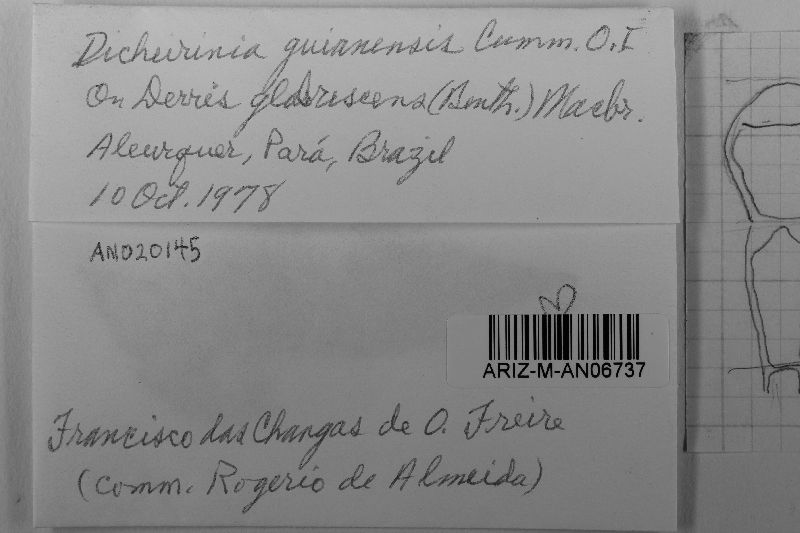 Dicheirinia guianensis Cumm. O.I
On Derris glabrescens (Benth.) Macbr.
Alenquer, Pará, Brazil
10 Oct. 1978
AN020145
ARIZ-M-AN06737
Francisco das Changas de O. Freire
(comm. Rogerio de Almeida)